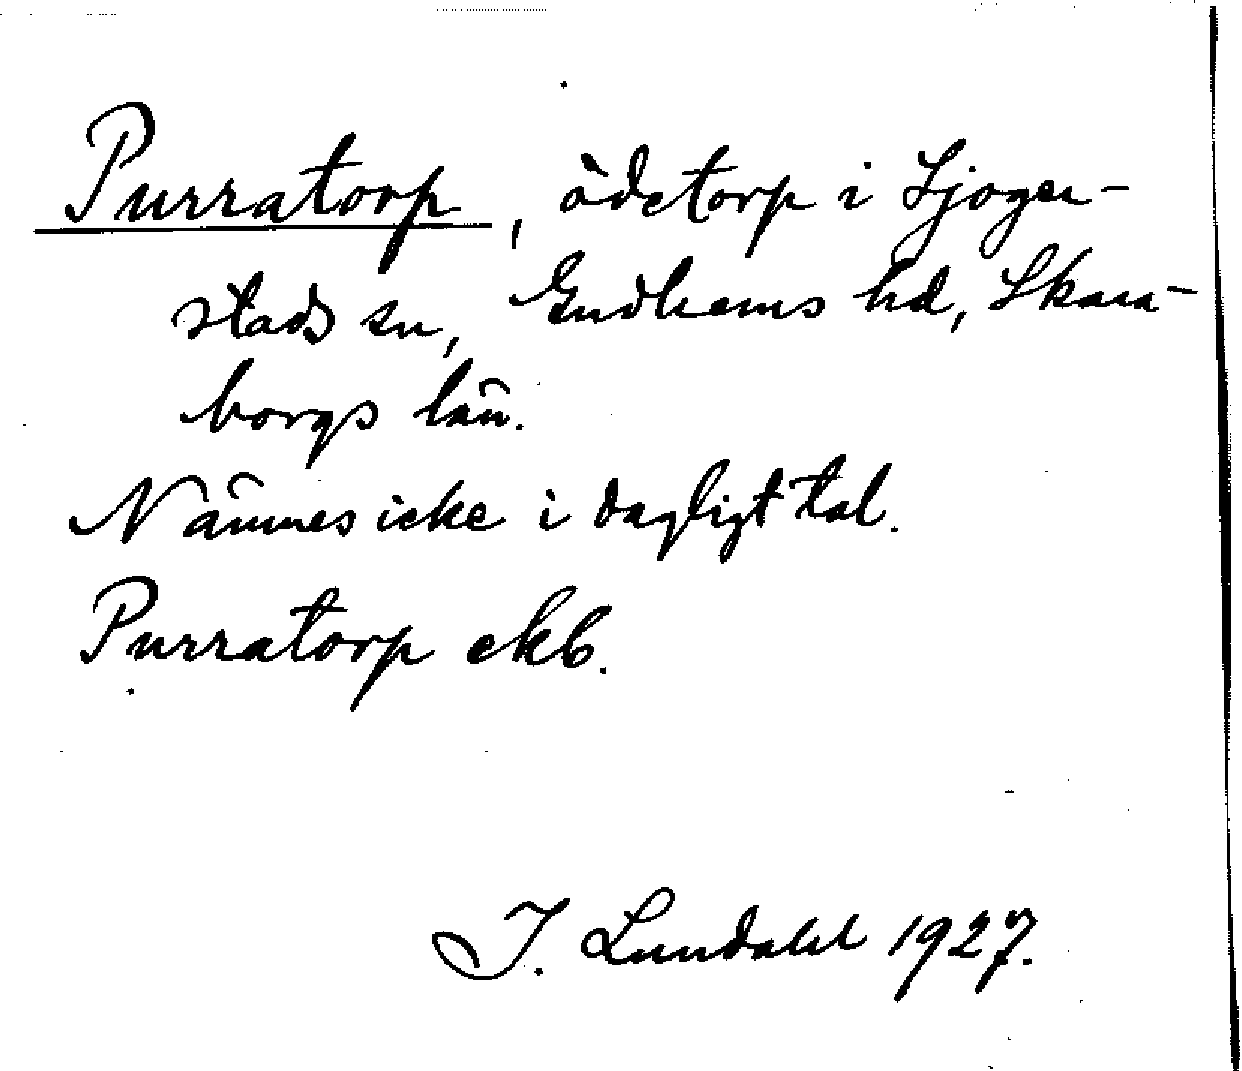 Purratorp, ödetorp i Sjoger-
stads sn, Gudhems hd, Skara-
borgs län.
Nämnes icke i dagligt tal.
Purratorp ekb.
I. Lundahl 1927.